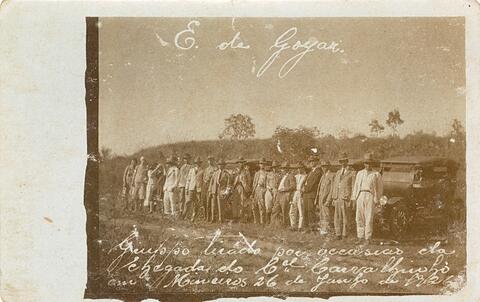 E. de Goyaz.
Gruppo tirado por occasião da
chegada do Cel Carvalhinho
em Mineiros 26 de Junho de